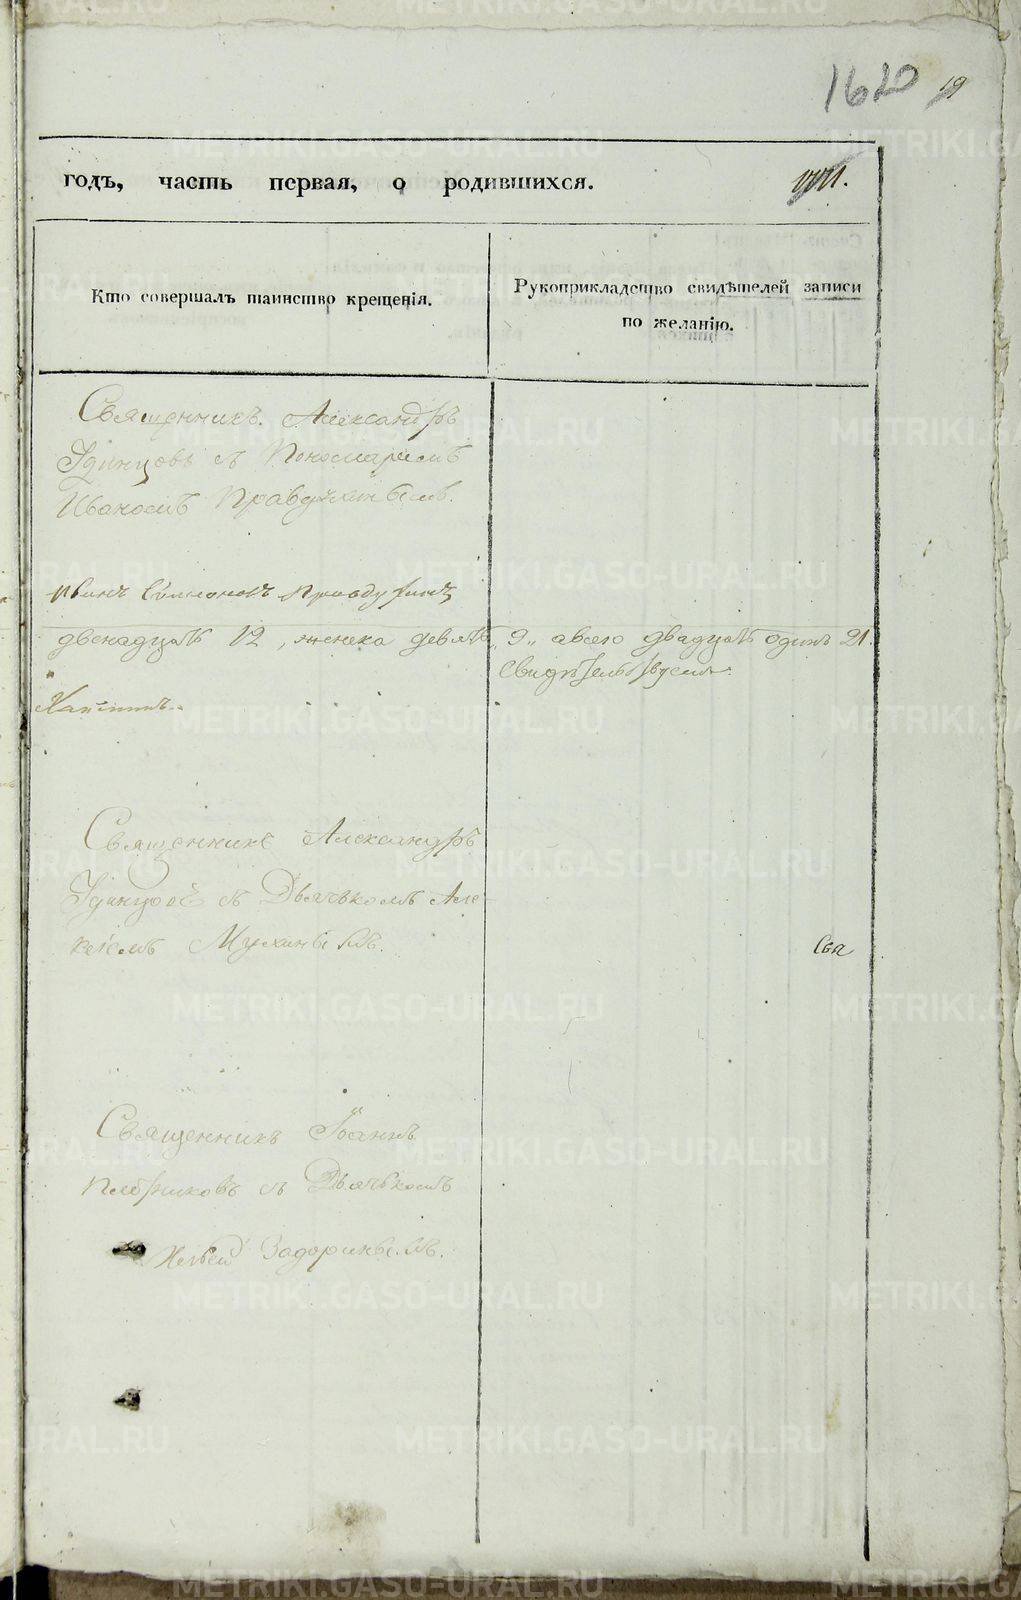 1620 19
годъ, часть первая, о родившихся.
Кто совершалъ таинство крещенія.
Рукоприкладство свидѣтелей записи
по желанію.
Священникъ Александръ
Удинцовъ съ Пономаремъ
Иваномъ Правдухинымъ.
Иванъ Правдухинъ
двенадцать 12, женска девять 9, а всего двадцать одинъ 21.
Свидѣтельствуемъ.
Священникъ Александръ
Удинцовъ съ Дьячькомъ Але-
ксѣемъ Мухинымъ.
Свя
Священникъ Іоаннъ
съ Дьячькомъ
Задоринымъ.
METRIKI.GASO-URAL.RU